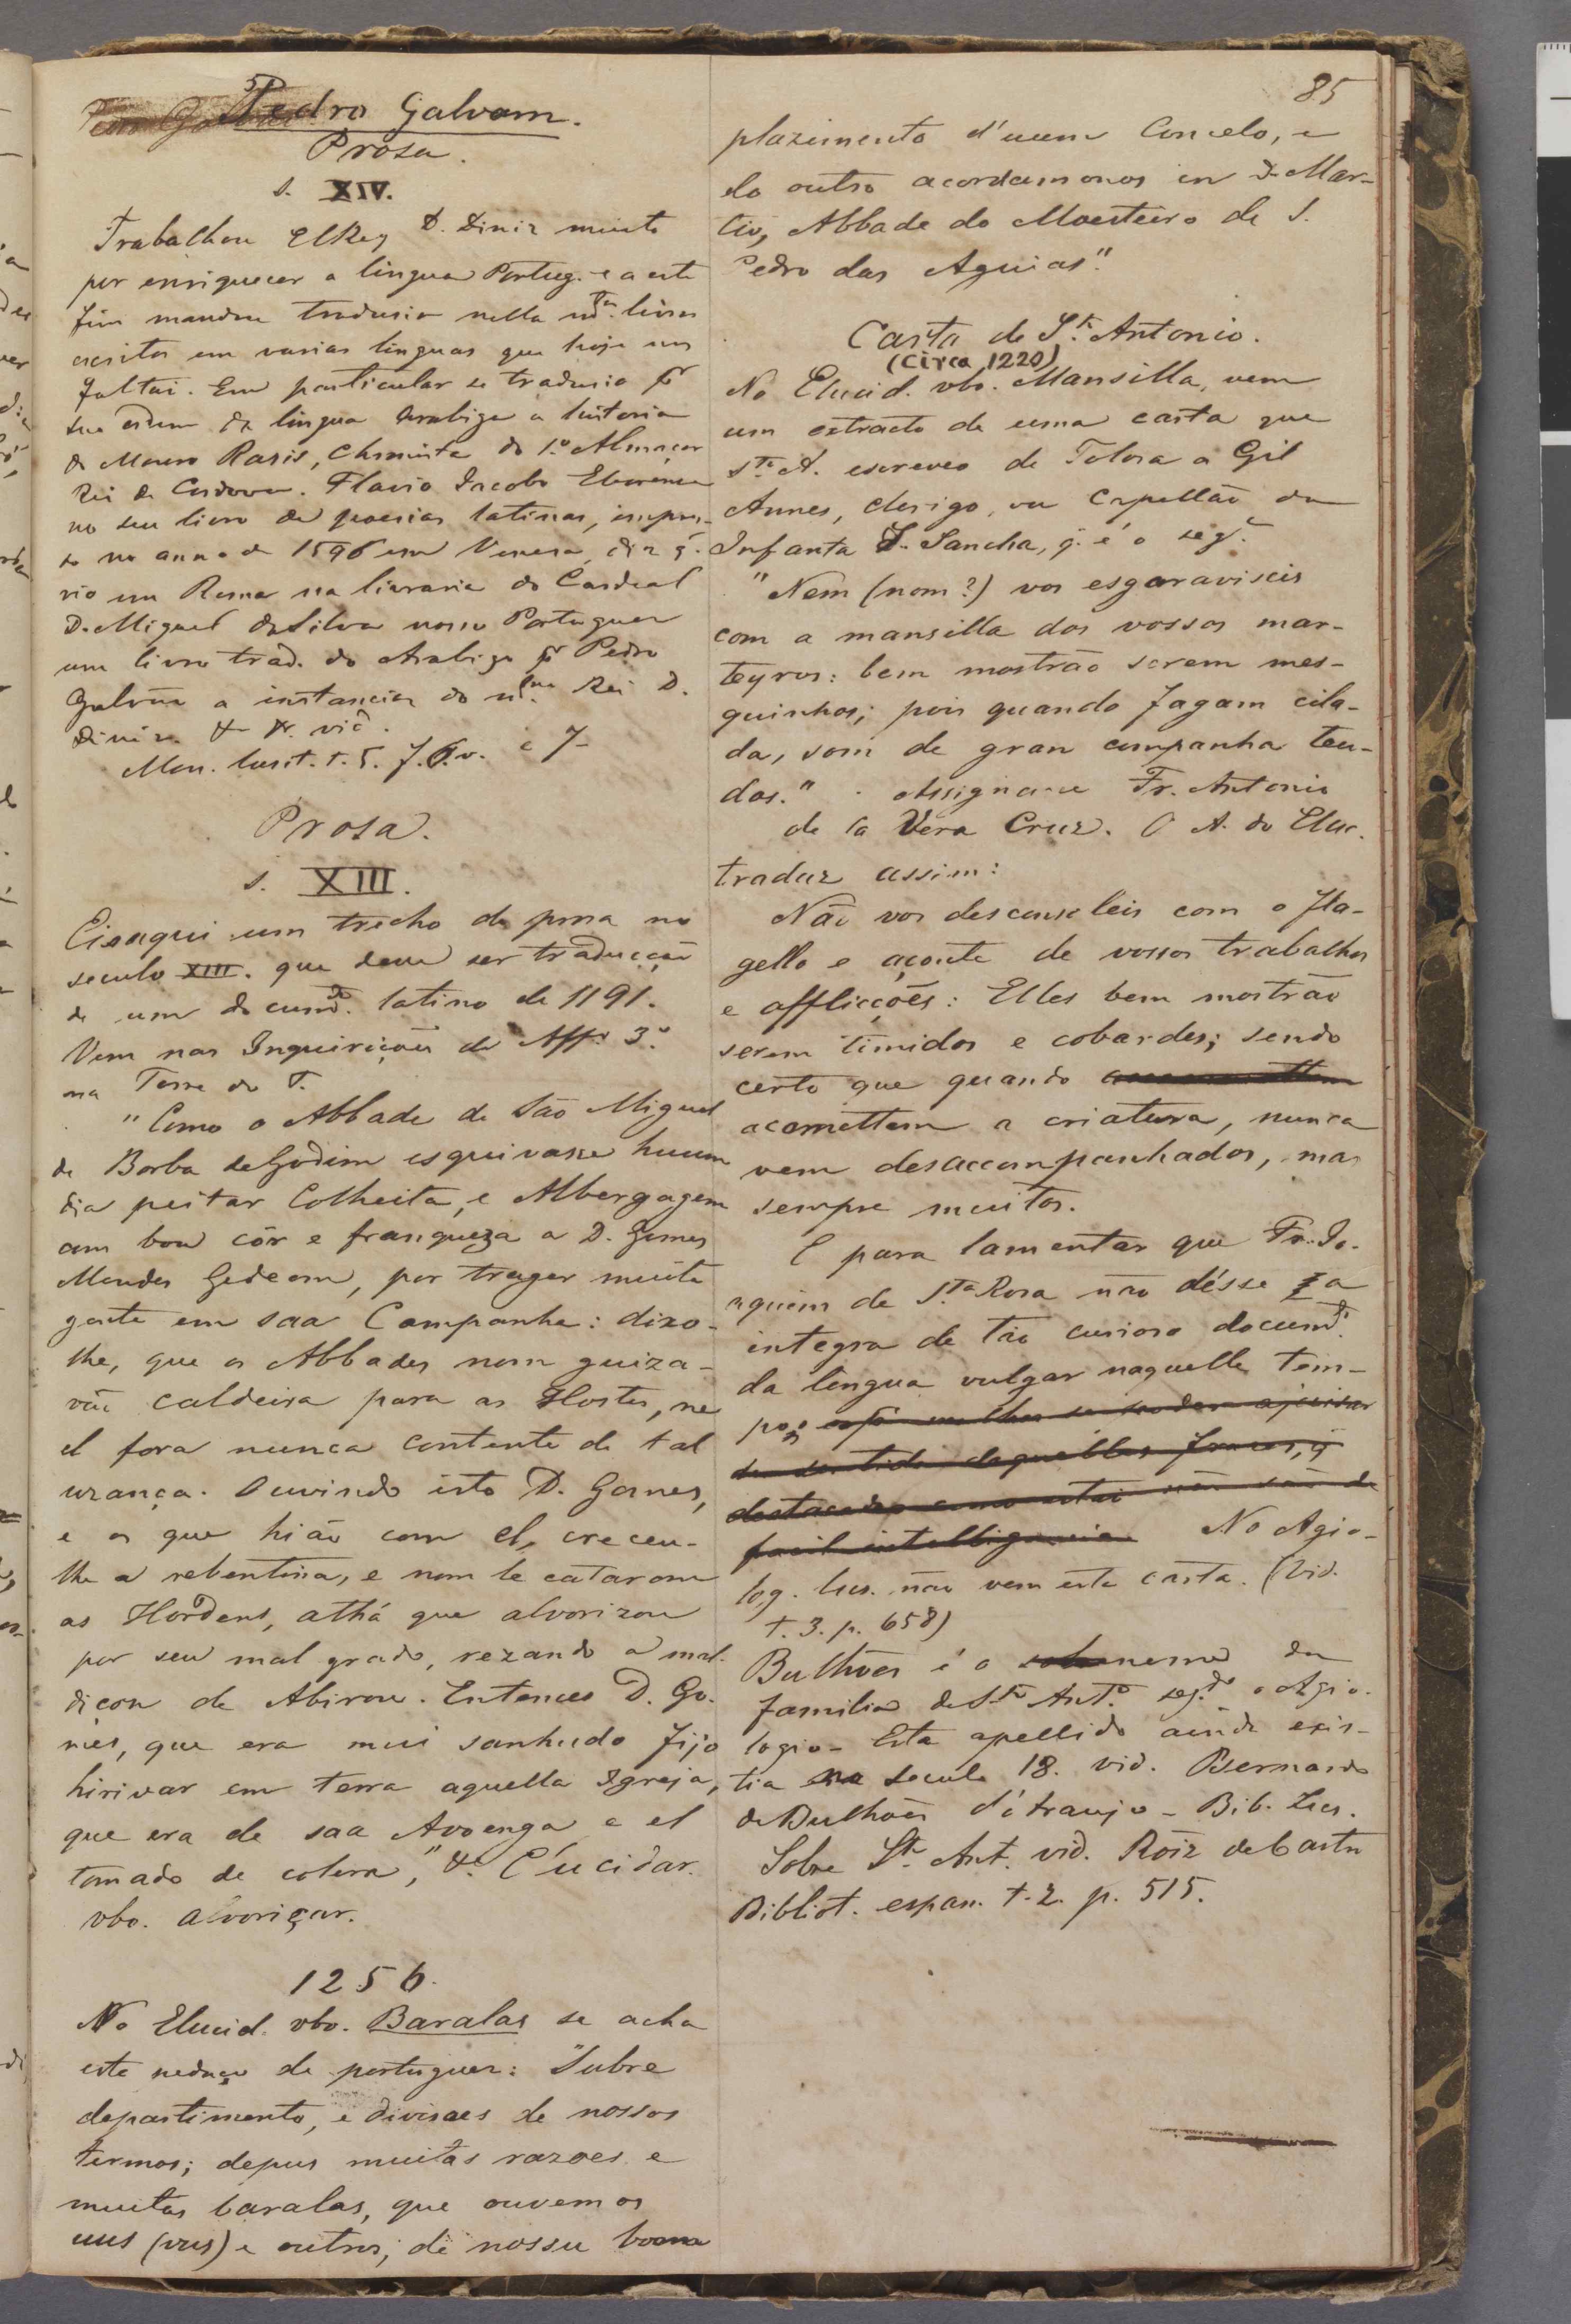 85
Pedro Galvam.
Prosa.
s. XIV.
Trabalhou ElRey D. Diniz muito
por enriquecer a lingua Portug. e a este
fim mandou tradusir nella m.tos livros
escritos em varias linguas que hoje nos
faltão. Em particular se tradusio por
sua ordem da lingua Arabiga a historia
do Mouro Rasis, Chronista do 1.º Almançor
Rei de Cordova. Flavio Jacobo Eborense
no seu livro de poesias latinas, impres-
so no anno de 1596 em Venesa, diz q.
vio em Roma na livraria do Cardeal
D. Miguel da Silva nosso Portuguez
um livro trad. do Arabigo por Pedro
Galvão a instancia do m.mo Rei D.
Diniz &
Mon. Lusit. t. 5. f. 6. v. e 7-
Prosa.
s. XIII.
Eis aqui um trecho de prosa no
seculo XIII. que deve ser traducção
de um docum.to latino de 1191.
Vem nas Inquirições de Aff.º 3.º
na Torre do T.
"Como o Abbade de São Miguel
de Borba de Godim esquivasse huum
dia peitar Colheita, e Albergagem
am boa côr e franqueza a D. Gomes
Mendes Gedeom, por trager muita
gente em saa Companha: dixo-
lhe, que os Abbades nom guiza-
vão caldeira para as Hostes, ne
el fora nunca contente de tal
uzança. Ouvindo isto D. Gomes,
e os que hião com el, creceu-
lhe a rebentina, e nom le catarom
as Hordens, athá que alvorizou
por seu mal grado, rezando a mal-
diçon de Abirou. Entonces D. Go-
mes, que era mui sanhudo fijo
hirivar em terra aquella Igreja,
que era de saa Avoenga, e el
tomado de colera," &. Elucidar.
vbo. alvoriçar.
1256.
No Elucid. vbo. Baralas se acha
este pedaço de portuguez: "Subre
departimento, e divisaes de nossos
termos; depus muitas razoes e
muitas baralas, que ouvemos
uus (vus) e outros; de nossu boona
plazimento d'uum Concelo, e
do outro acordamonos in D. Mar-
tio, Abbade do Moesteiro de S.
Pedro das Aguias".
Carta de S.to Antonio.
(Circa 1220)
No Elucid. vbo. Mansilla, vem
um extracto de uma carta que
S.to A. escreveo de Tolosa a Gil
Annes, clerigo, ou Capellão da
Infanta D. Sancha, q. é o seg.te
"Nem (nom?) vos esgaraviseis
com a mansilla dos vossos mar-
teyros: bem mostrão serem mes-
quinhos; pois quando fagam cila-
da, som de gran companha teu-
dos." Assigna-se Fr. Antonio
de la Vera Cruz. O A. do Eluc.
traduz assim:
Não vos desconsoleis com o fla-
gello e açoute de vossos trabalhos
e afflicções: Elles bem mostrão
serem timidos e cobardes; sendo
certo que quando
acomettem a criatura, nunca
vem desaccompanhados, mas
sempre muitos.
É para lamentar que Fr. Jo-
aquim de S.ta Rosa não désse a
integra de tão curioso docum.to
da lingua vulgar naquelle tem-
po; melhor se poder ajuizar
do sentido daquellas frases, q
destacadas como estão não são de
facil intelligencia No Agio-
log. Lus. não vem esta carta. (Vid.
t. 3. p. 658)
Bulhões é o nome da
familia de S.to Ant.º seg.do o Agio-
logio- Este apellido ainda exis-
tia no seculo 18. vid. Bernardo
de Bulhões d'Araujo - Bib. Lus.
Sobre S.to Ant. vid. Roiz de Castro
Bibliot. espan. t. 2. p. 515.